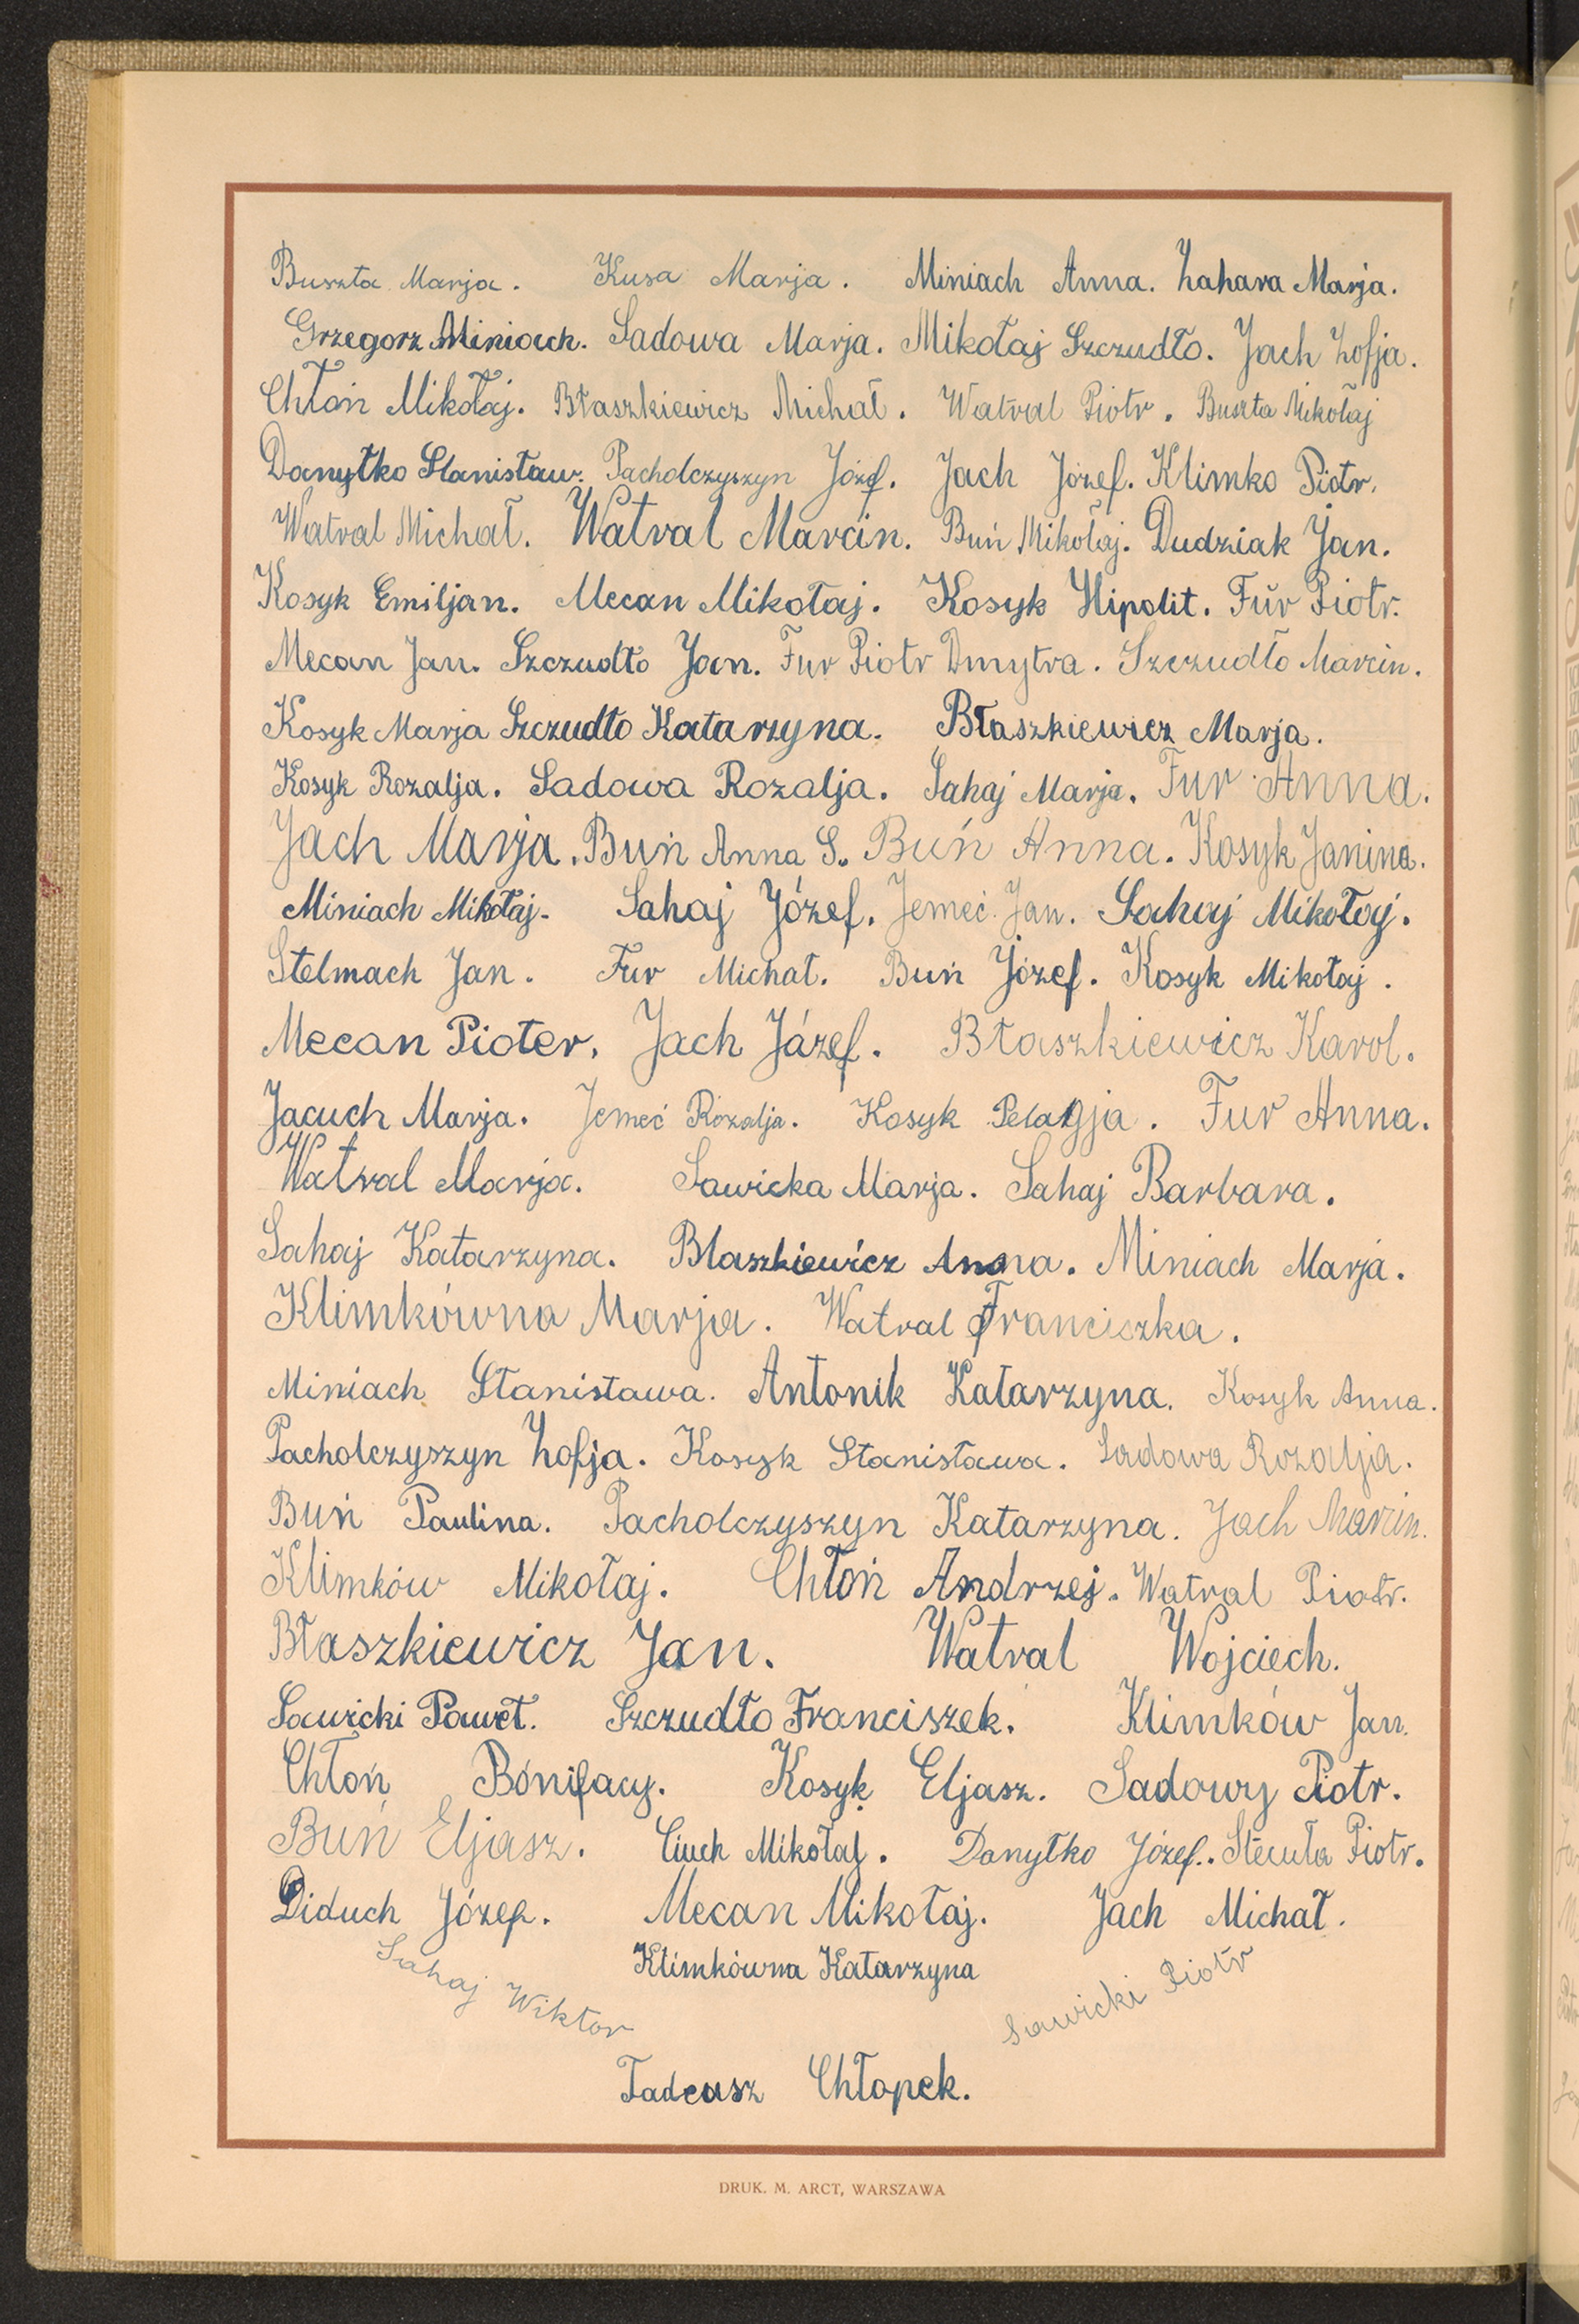 Buszta Marja. Kusa Marja. Miniach Anna. Zahara Marja.
Grzegorz Miniach. Sadowa Marja. Mikołaj Szczudło. Jach Zofja.
Chłoń Mikołaj. Błaszkiewicz Michał. Watral Piotr. Buszta Mikołaj
Danyłko Stanisław. Pacholczyszyn Józef. Jach Józef. Klimko Piotr.
Watral Michał. Watral Marcin. Buń Mikołaj. Dudziak Jan.
Kosyk Emiljan. Mecan Mikołaj. Kosyk Hipolit. Fur Piotr.
Mecan Jan. Szczudło Jan. Fur Piotr Dmytra. Szczudło Marcin.
Kosyk Marja Szczudło Katarzyna. Błaszkiewicz Marja.
Kosyk Rozalja. Sadowa Rozalja. Sahaj Marja. Fur Anna.
Jach Marja. Buń Anna S. Buń Anna. Kosyk Janina.
Miniach Mikołaj. Sahaj Józef. Jemeć Jan. Sahaj Mikołaj.
Stelmach Jan. Fur Michał. Buń Józef. Kosyk Mikołaj.
Mecan Pioter. Jach Józef. Błaszkiewicz Karol.
Jacuch Marja. Jemeć Rozalja. Kosyk Pelagja. Fur Anna.
Watral Marja. Sawicka Marja. Sahaj Barbara.
Sahaj Katarzyna. Błaszkiewicz Anna. Miniach Marja.
Klimkówna Marja. Watral Franciszka.
Miniach Stanisława. Antonik Katarzyna. Kosyk Anna.
Pacholczyszyn Zofja. Kosyk Stanisława. Sadowa Rozalja.
Buń Paulina. Pacholczyszyn Katarzyna. Jach Marcin.
Klimków Mikołaj. Chłoń Andrzej. Watral Piotr.
Błaszkiewicz Jan. Watral Wojciech.
Sawicki Paweł. Szczudło Franciszek. Klimków Jan.
Chłoń Bonifacy. Kosyk Eljasz. Sadowy Piotr.
Buń Eljasz. Ciuch Mikołaj. Danyłko Józef. Stecuła Piotr.
Diduch Józef. Mecan Mikołaj. Jach Michał.
Sahaj Wiktor Klimkówna Katarzyna Sawicki Piotr
Tadeusz Chłopek.
DRUK. M. ARCT, WARSZAWA